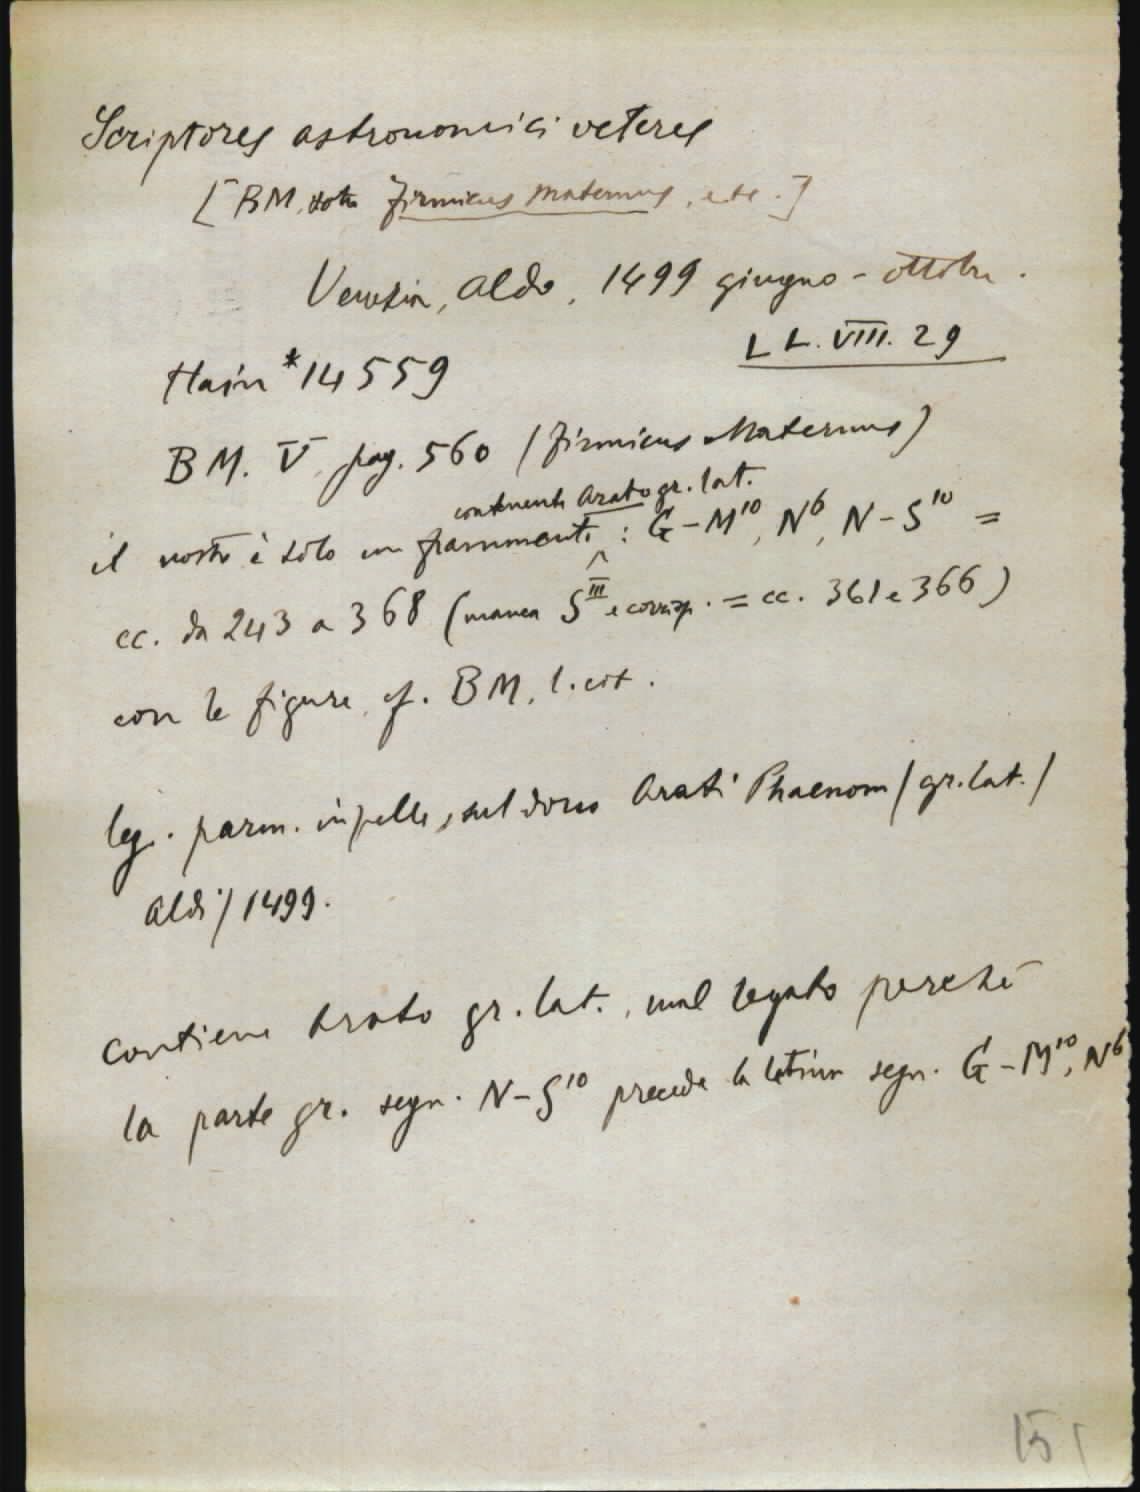 Scriptores astronomici veteres
[BM, sotto Firmicus Maternus, etc.]
Venezia, Aldo, 1499 giugno - ottobre.
LL.VIII.29
Hain *14559
BM. V pag. 560 (Firmicus Maternus)
contenente Arato gr. lat.
il nostro è solo un frammento : G-M¹⁰, N⁶, N-S¹⁰ =
cc. da 243 a 368 (manca S III e corrisp. = cc. 361 e 366)
con le figure, cf. BM, l. cit.
leg. parm. in pelle, sul dorso Arati Phaenom / gr. lat. /
Aldi / 1499.
contiene Arato gr. lat., mal legato perché
la parte gr. segn. N-S¹⁰ precede la latina segn. G-M¹⁰, N⁶
151